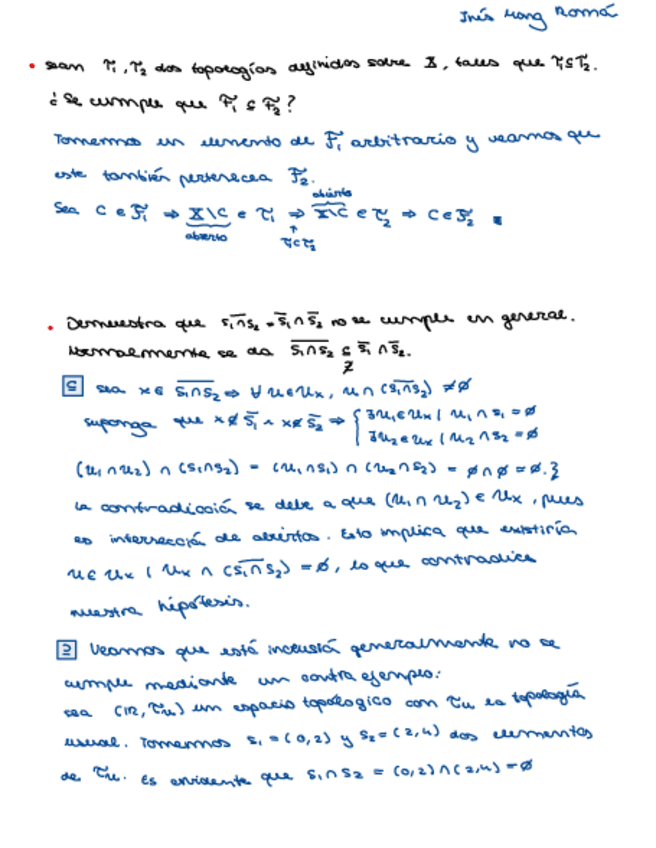 Inés Mong Romá
• Sean τ₁, τ₂ dos topologías definidas sobre X, tales que τ₁⊆τ₂.
¿Se cumple que F₁ ⊆ F₂?
Tomemos un elemento de F₁ arbitrario y veamos que
este también pertenece a F₂.
Sea C ∈ F₁ ⇒ X\C ∈ τ₁ ⇒ X\C ∈ τ₂ ⇒ C ∈ F₂ ▪
abierto
abierto
↑
τ₁⊂τ₂
• Demuestra que \overline{S₁∩S₂} = \overline{S₁} ∩ \overline{S₂} no se cumple en general.
Normalmente se da \overline{S₁∩S₂} ⊊ \overline{S₁} ∩ \overline{S₂}.
⊆ sea x ∈ \overline{S₁∩S₂} ⇒ ∀ u ∈ U_x, u ∩ (\overline{S₁∩S₂}) ≠ ∅
suponga que x ∉ \overline{S₁} ∧ x ∉ \overline{S₂} ⇒ { ∃u₁ ∈ U_x | u₁ ∩ S₁ = ∅
∃u₂ ∈ U_x | u₂ ∩ S₂ = ∅
(u₁ ∩ u₂) ∩ (S₁∩S₂) = (u₁∩S₁) ∩ (u₂∩S₂) = ∅ ∩ ∅ = ∅.}
la contradicciá se debe a que (u₁ ∩ u₂) ∈ U_x, pues
es intersección de abiertos. Esto implica que existiría
u ∈ U_x | U_x ∩ (\overline{S₁∩S₂}) = ∅, lo que contradice
nuestra hipótesis.
⊇ Veamos que está inclusión generalmente no se
cumple mediante un contra ejemplo:
sea (ℝ, τᵤ) un espacio topólogico con τᵤ la topología
usual. Tomemos S₁ = (0,2) y S₂ = (2,4) dos elementos
de τᵤ. Es evidente que S₁∩S₂ = (0,2)∩(2,4) = ∅